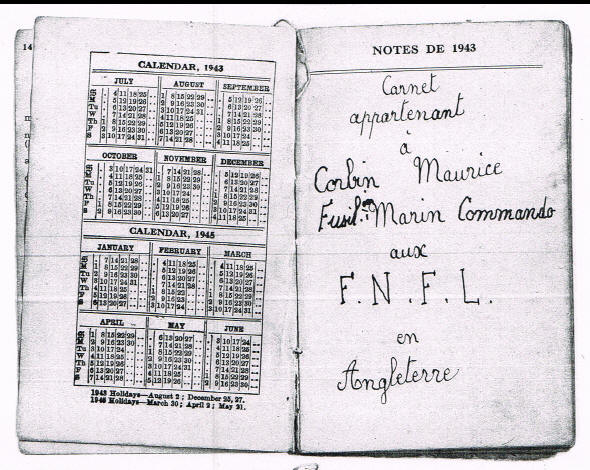 14
CALENDAR, 1943
JULY AUGUST SEPTEMBER
S 4 11 18 25 1 8 15 22 29 5 12 19 26
M 5 12 19 26 2 9 16 23 30 6 13 20 27
Tu 6 13 20 27 3 10 17 24 31 7 14 21 28
W 7 14 21 28 4 11 18 25 1 8 15 22 29
Th 1 8 15 22 29 5 12 19 26 2 9 16 23 30
F 2 9 16 23 30 6 13 20 27 3 10 17 24
S 3 10 17 24 31 7 14 21 28 4 11 18 25
OCTOBER NOVEMBER DECEMBER
S 3 10 17 24 31 7 14 21 28 5 12 19 26
M 4 11 18 25 1 8 15 22 29 6 13 20 27
Tu 5 12 19 26 2 9 16 23 30 7 14 21 28
W 6 13 20 27 3 10 17 24 1 8 15 22 29
Th 7 14 21 28 4 11 18 25 2 9 16 23 30
F 1 8 15 22 29 5 12 19 26 3 10 17 24 31
S 2 9 16 23 30 6 13 20 27 4 11 18 25
CALENDAR, 1945
JANUARY FEBRUARY MARCH
S 7 14 21 28 4 11 18 25 4 11 18 25
M 1 8 15 22 29 5 12 19 26 5 12 19 26
Tu 2 9 16 23 30 6 13 20 27 6 13 20 27
W 3 10 17 24 31 7 14 21 28 7 14 21 28
Th 4 11 18 25 1 8 15 22 1 8 15 22 29
F 5 12 19 26 2 9 16 23 2 9 16 23 30
S 6 13 20 27 3 10 17 24 3 10 17 24 31
APRIL MAY JUNE
S 1 8 15 22 29 6 13 20 27 3 10 17 24
M 2 9 16 23 30 7 14 21 28 4 11 18 25
Tu 3 10 17 24 1 8 15 22 29 5 12 19 26
W 4 11 18 25 2 9 16 23 30 6 13 20 27
Th 5 12 19 26 3 10 17 24 31 7 14 21 28
F 6 13 20 27 4 11 18 25 1 8 15 22 29
S 7 14 21 28 5 12 19 26 2 9 16 23 30
1943 Holidays—August 2; December 25, 27.
1945 Holidays—March 30; April 2; May 21.
NOTES DE 1943
Carnet
appartenant
à
Corbin Maurice
Fusil. Marin Commando
aux
F.N.F.L.
en
Angleterre